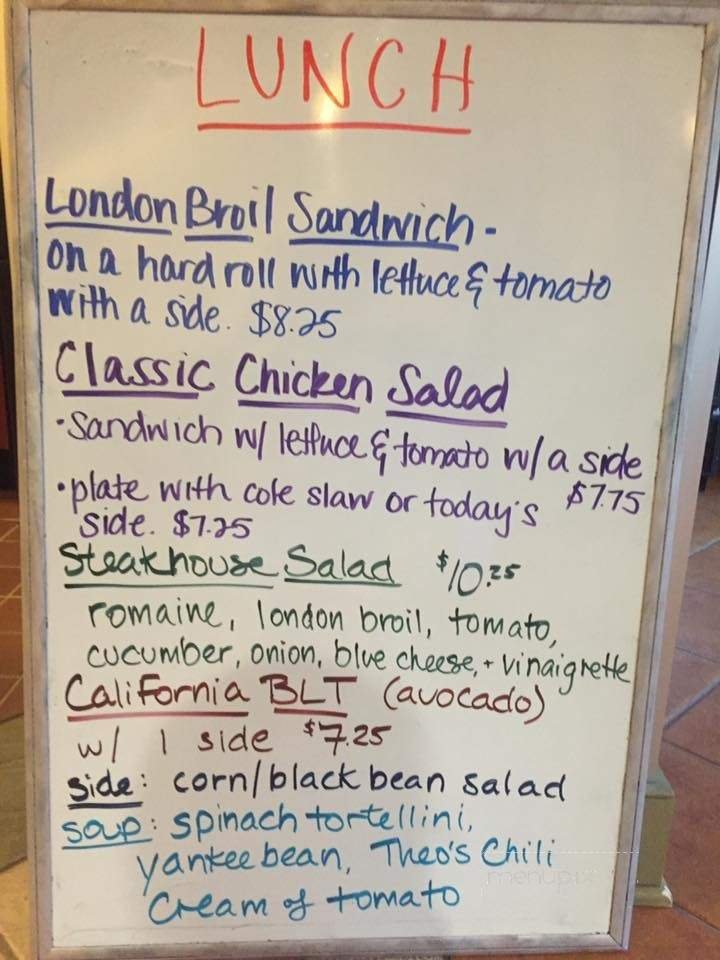 LUNCH
London Broil Sandwich -
on a hard roll with lettuce & tomato
with a side. $8.25
Classic Chicken Salad
•Sandwich w/ lettuce & tomato w/ a side
$7.75
•plate with cole slaw or today's
side. $7.25
Steakhouse Salad $10.25
romaine, london broil, tomato,
cucumber, onion, blue cheese, + vinaigrette
California BLT (avocado)
w/ 1 side $7.25
side: corn/black bean salad
soup: spinach tortellini,
yankee bean, Theo's Chili
Cream of tomato